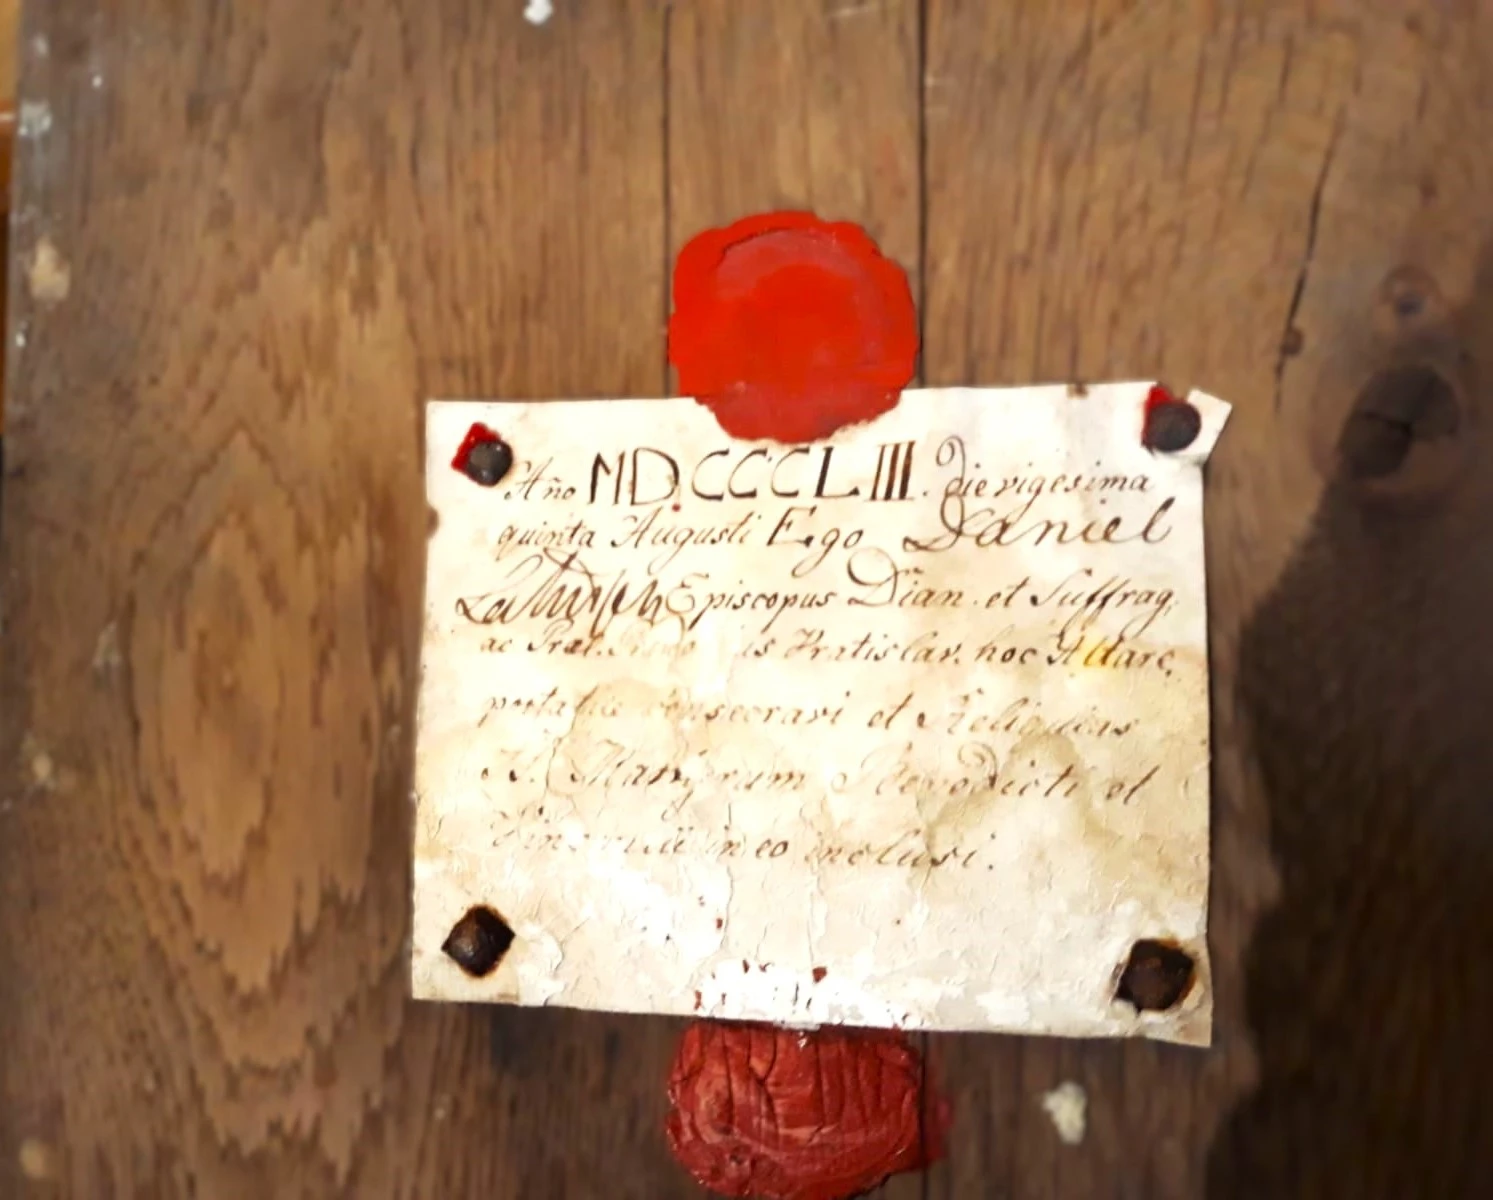 Año MDCCCLIII. Die vigesima
quinta Augusti Ego Daniel
Latussek Episcopus Dian. et Suffrag.
ac Præl. is Vratislav. hoc Altare
portatile consecravi et Reliquias
S.S. Martyrum Benedicti et
in eo inclusi.